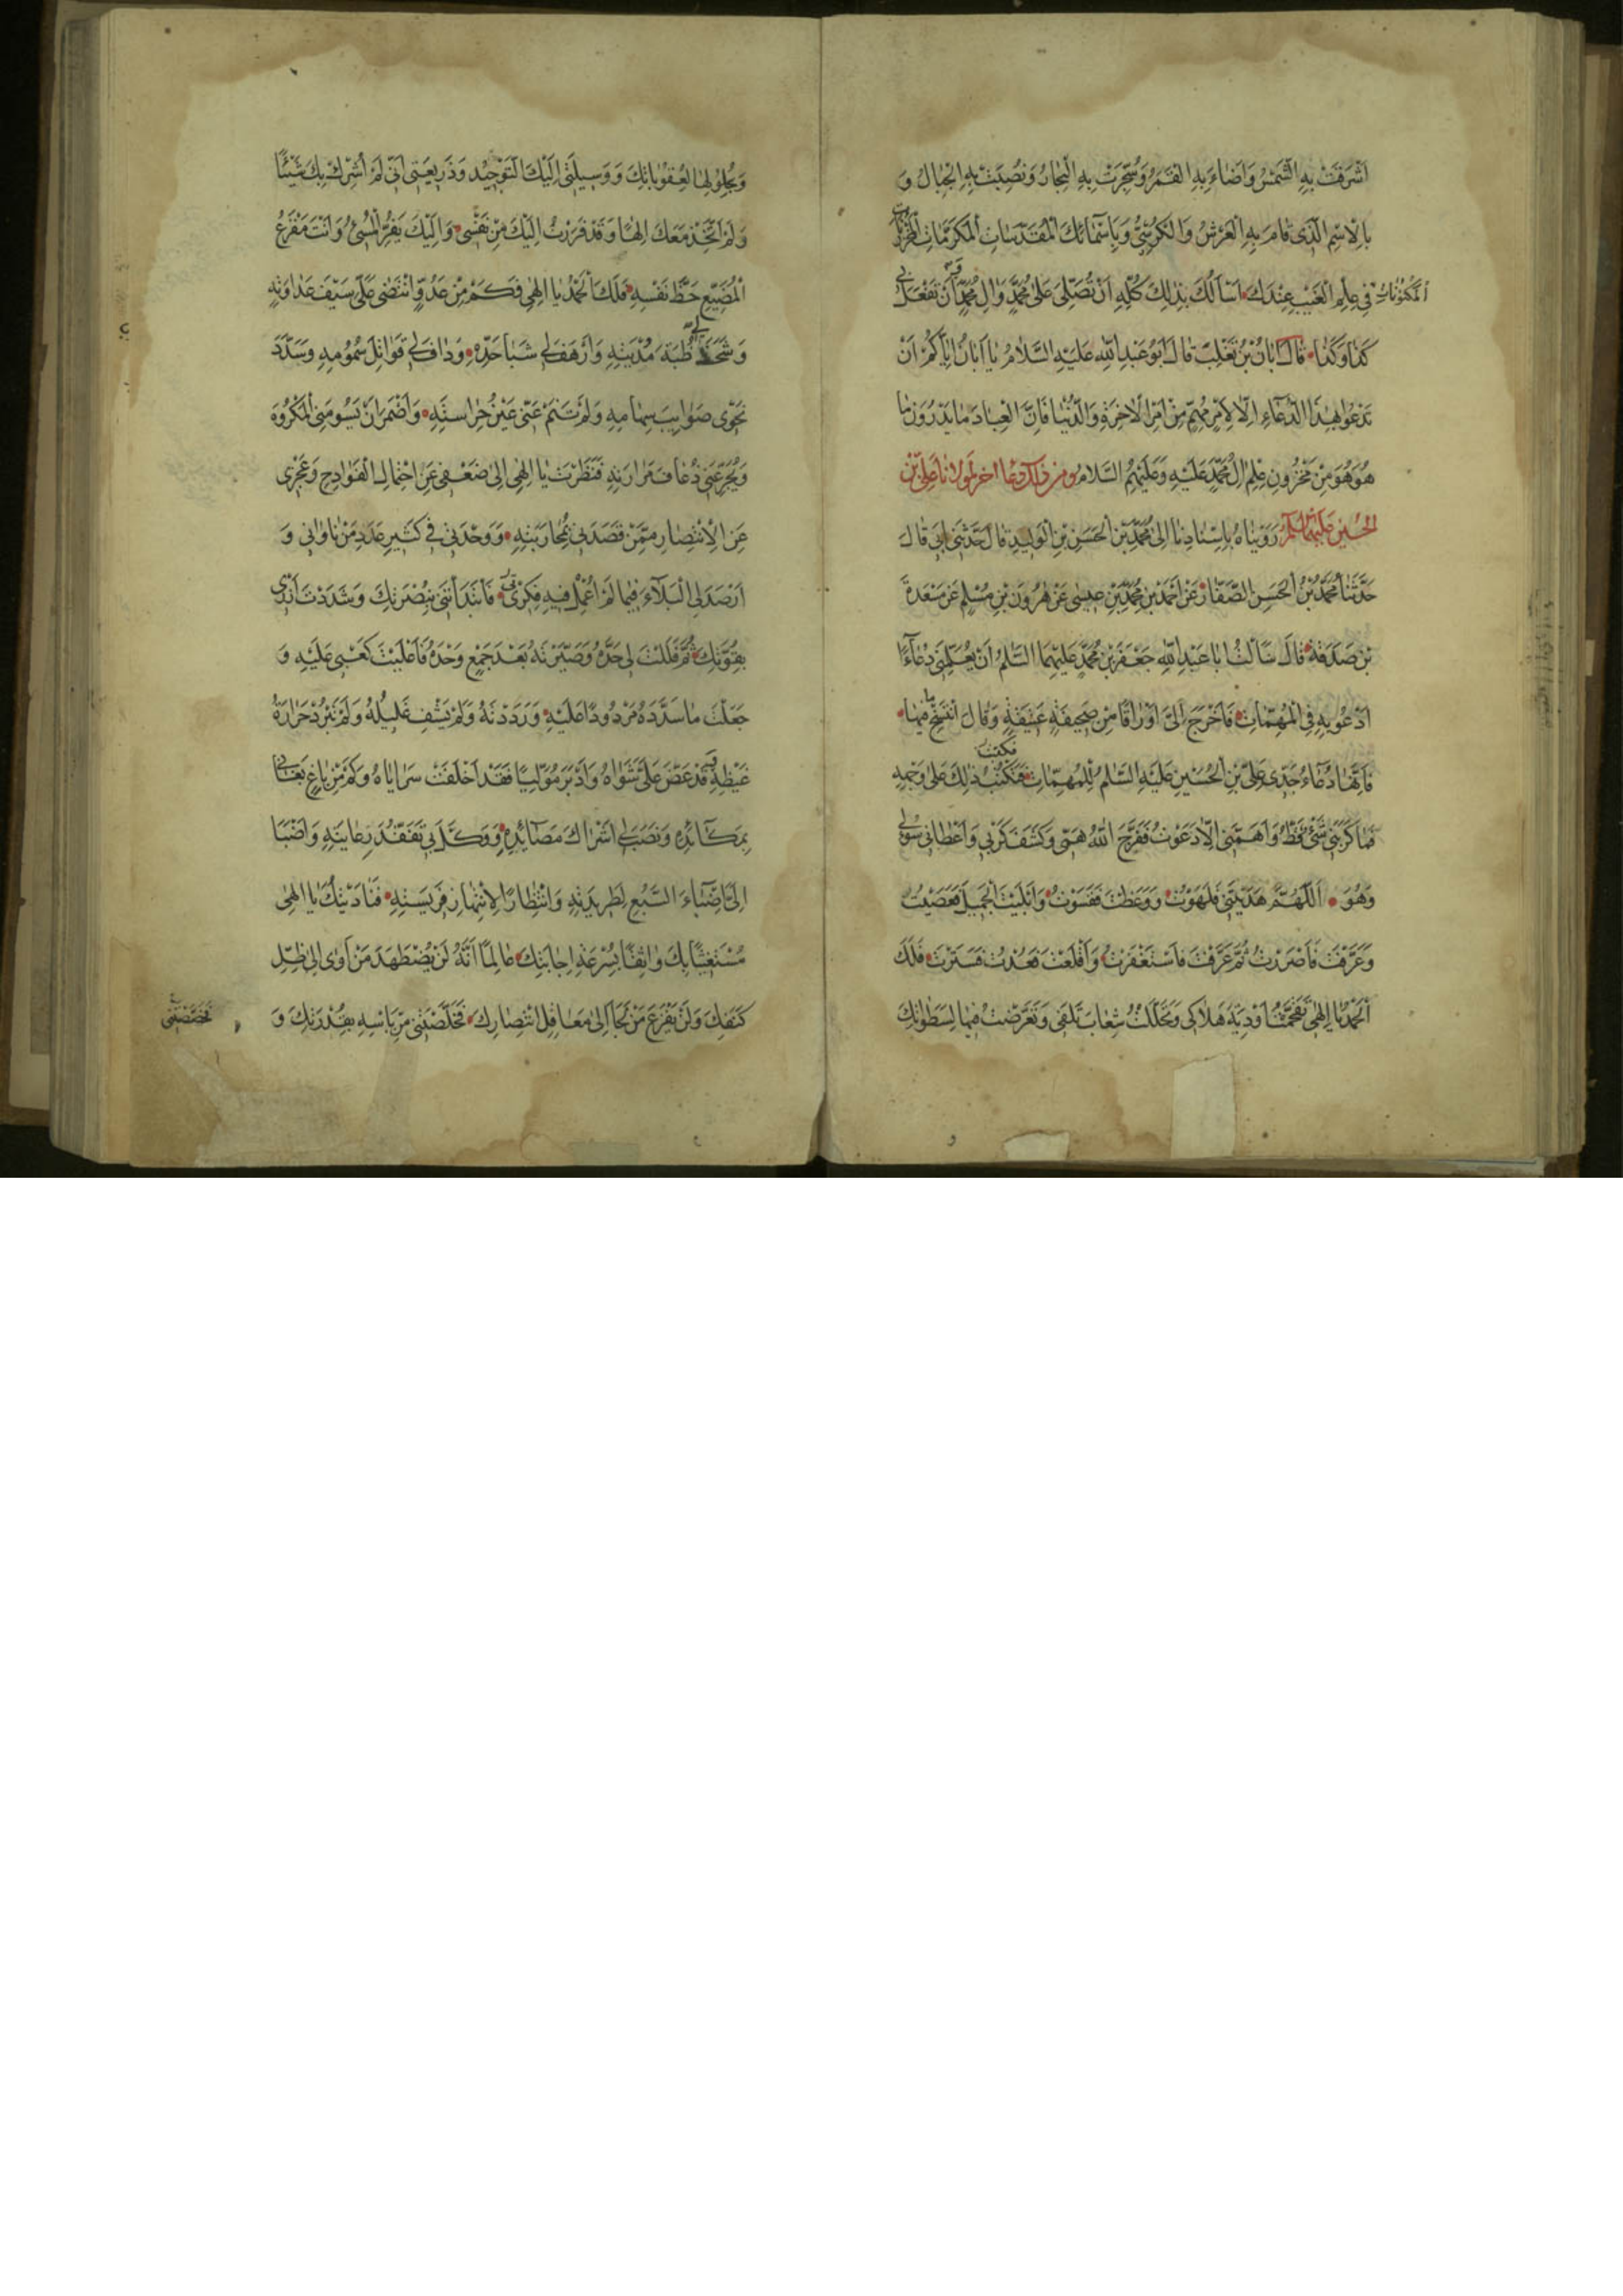 اَشْرَقَتْ بِهِ الشَّمْسُ وَاَضاءَ بِهِ الْقَمَرُ وَسُجِّرَتْ بِهِ الْبِحارُ وَنُصِبَتْ بِهِ الْجِبالُ وَ
بِالْاِسْمِ الَّذى قامَ بِهِ الْعَرْشُ وَالْكُرْسِىُّ وَبِاَسْمائِكَ الْمُقَدَّساتِ الْمُكَرَّماتِ الْمَخْزُوناتِ
الْمَكْنُوناتِ فى عِلْمِ الْغَيْبِ عِنْدَكَ اَسْاَلُكَ بِذلِكَ كُلِّهِ اَنْ تُصَلِّىَ عَلى مُحَمَّدٍ وَالِ مُحَمَّدٍ وَ اَنْ تَفْعَلَ بى
كَذا وَكَذا قالَ اَبانُ بْنُ تَغْلِبَ قالَ اَبُو عَبْدِ اللهِ عَلَيْهِ السَّلامُ يا اَبانُ اِيّاكُمْ اَنْ
تَدْعُوا بِهذَا الدُّعآءِ اِلّا لِاَمْرٍ مُهِمٍّ مِنْ اَمْرِ الْاخِرَةِ وَالدُّنْيا فَاِنَّ الْعِبادَ ما يَدْرُونَ ما
هُوَ هُوَ مِنْ مَخْزُونِ عِلْمِ الِ مُحَمَّدٍ عَلَيْهِ وَعَلَيْهِمُ السَّلامُ ومن ذلك دعا اخر لمولانا على بن
الحسين عليهما السلم رَوَيْناهُ بِاِسْنادِنا اِلى مُحَمَّدِ بْنِ الْحَسَنِ بْنِ الْوَليدِ قالَ حَدَّثَنى اَبى قالَ
حَدَّثَنا مُحَمَّدُ بْنُ الْحَسَنِ الصَّفّارُ عَنْ اَحْمَدَ بْنِ مُحَمَّدِ بْنِ عيسى عَنْ هرُونَ بْنِ مُسْلِمٍ عَنْ مَسْعَدَةَ
بْنِ صَدَقَةَ قالَ سَاَلْتُ اَبا عَبْدِ اللهِ جَعْفَرَ بْنَ مُحَمَّدٍ عَلَيْهِمَا السَّلمُ اَنْ يُعَلِّمَنى دُعآءً
اَدْعُو بِهِ فِى الْمُهِمّاتِ فَاَخْرَجَ اِلَىَّ اَوْراقًا مِنْ صَحيفَةٍ عَتيقَةٍ وَقالَ انْتَسِخْ ما فيها
فَاِنَّها دُعآءُ جَدّى عَلىِّ بْنِ الْحُسَيْنِ عَلَيْهِ السَّلمُ لِلْمُهِمّاتِ فَكَتَبْتُ ذلِكَ عَلى وَجْهِهِ
فَما كَرَبَنى شَىْءٌ قَطُّ وَاَهَمَّنى اِلّا دَعَوْتُ فَفَرَّجَ اللهُ هَمّى وَكَشَفَ كَرْبى وَاَعْطانى سُؤلى
وَهُوَ اَللّهُمَّ هَدَيْتَنى فَلَهَوْتُ وَوَعَظْتَ فَقَسَوْتُ وَاَبْلَيْتَ الْجَميلَ فَعَصَيْتُ
وَعَرَّفْتَ فَاَصْرَرْتُ ثُمَّ عَرَّفْتَ فَاسْتَغْفَرْتُ وَاَقْلَعْتَ فَعُدْتُ فَسَتَرْتَ فَلَكَ
الْحَمْدُ يا اِلهى تَقَحَّمْتُ اَوْدِيَةَ هَلاكى وَتَحَلَّلْتُ شِعابَ تَلَفى وَتَعَرَّضْتُ فيها لِسَطَواتِكَ
وَبِحُلُولِها لِعُقُوباتِكَ وَوَسيلَتى اِلَيْكَ التَّوْحيدُ وَذَريعَتى اَنّى لَمْ اُشْرِكْ بِكَ شَيْئًا
وَلَمْ اَتَّخِذْ مَعَكَ اِلهًا وَقَدْ فَرَرْتُ اِلَيْكَ مِنْ نَفْسى وَاِلَيْكَ يَفِرُّ الْمُسىءُ وَاَنْتَ مَفْزَعُ
الْمُضَيِّعِ حَظَّ نَفْسِهِ فَلَكَ الْحَمْدُ يا اِلهى فَكَمْ مِنْ عَدُوٍّ انْتَضى عَلَىَّ سَيْفَ عَداوَتِهِ
وَشَحَذَ لى ظُبَةَ مُدْيَتِهِ وَاَرْهَفَ لى شَبا حَدِّهِ وَدافَ لى قَواتِلَ سُمُومِهِ وَسَدَّدَ
نَحْوى صَوائِبَ سِهامِهِ وَلَمْ تَنَمْ عَنّى عَيْنُ حِراسَتِهِ وَاَضْمَرَ اَنْ يَسُومَنِى الْمَكْرُوهَ
وَيُجَرِّعَنى ذُعافَ مَرارَتِهِ فَنَظَرْتَ يا اِلهى اِلى ضَعْفى عَنِ احْتِمالِ الْفَوادِحِ وَعَجْزى
عَنِ الْاِنْتِصارِ مِمَّنْ قَصَدَنى بِمُحارَبَتِهِ وَوَحْدَتى فى كَثيرِ عَدَدِ مَنْ ناوانى وَ
اَرْصَدَ لِى الْبَلآءَ فيما لَمْ اُعْمِلْ فيهِ فِكْرَتى فَابْتَدَاْتَنى بِنُصْرَتِكَ وَشَدَدْتَ اَيْدى
بِقُوَّتِكَ ثُمَّ فَلَلْتَ لى حَدَّهُ وَصَيَّرْتَهُ بَعْدَ جَمْعٍ وَحْدَهُ وَاَعْلَيْتَ كَعْبى عَلَيْهِ وَ
جَعَلْتَ ما سَدَّدَهُ مَرْدُودًا عَلَيْهِ وَرَدَدْتَهُ وَلَمْ يَشْفِ غَليلَهُ وَلَمْ تَبْرُدْ حَرارَةُ
غَيْظِهِ وَ قَدْ عَضَّ عَلى شَواهُ وَاَدْبَرَ مُوَلِّيًا قَدْ اَخْلَفَتْ سَراياهُ وَكَمْ مِنْ باغٍ بَغانى
بِمَكآئِدِهِ وَنَصَبَ لى اَشْراكَ مَصآئِدِهِ وَوَكَّلَ بى تَفَقُّدَ رِعايَتِهِ وَاَضْبَاَ
اِلَىَّ اِضْبآءَ السَّبُعِ لِطَريدَتِهِ وَانْتِظارًا لِانْتِهازِ فَريسَتِهِ فَنادَيْتُكَ يا اِلهى
مُسْتَغيثًا بِكَ واثِقًا بِسُرْعَةِ اِجابَتِكَ عالِمًا اَنَّهُ لَنْ يُضْطَهَدَ مَنْ اَوى اِلى ظِلِّ
كَنَفِكَ وَلَنْ يَفْزَعَ مَنْ لَجَاَ اِلى مَعاقِلِ انْتِصارِكَ فَخَلَّصْتَنى مِنْ بَاْسِهِ بِقُدْرَتِكَ وَ
فَحَصَّنْتَنى